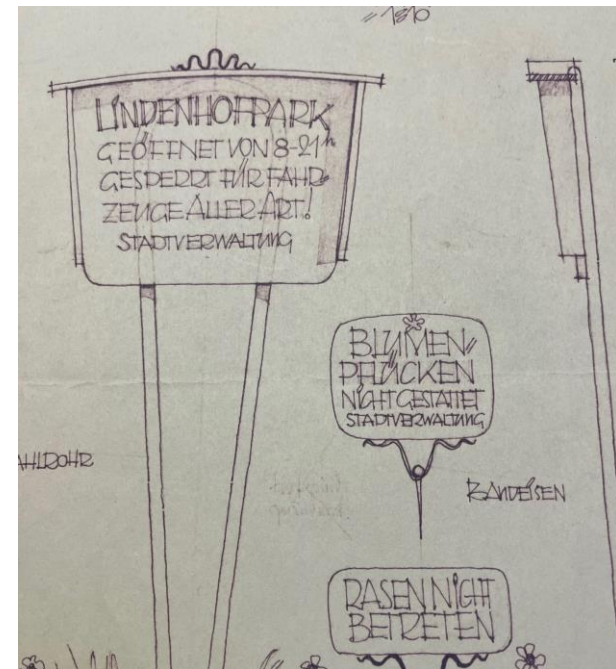 1:10
LINDENHOFPARK
GEÖFFNET VON 8-21h
GESPERRT FÜR FAHR-
ZEUGE ALLER ART!
STADTVERWALTUNG
BLUMEN-
PFLÜCKEN
NICHT GESTATTET
STADTVERWALTUNG
AHLROHR
BANDEISEN
RASEN NICHT
BETRETEN